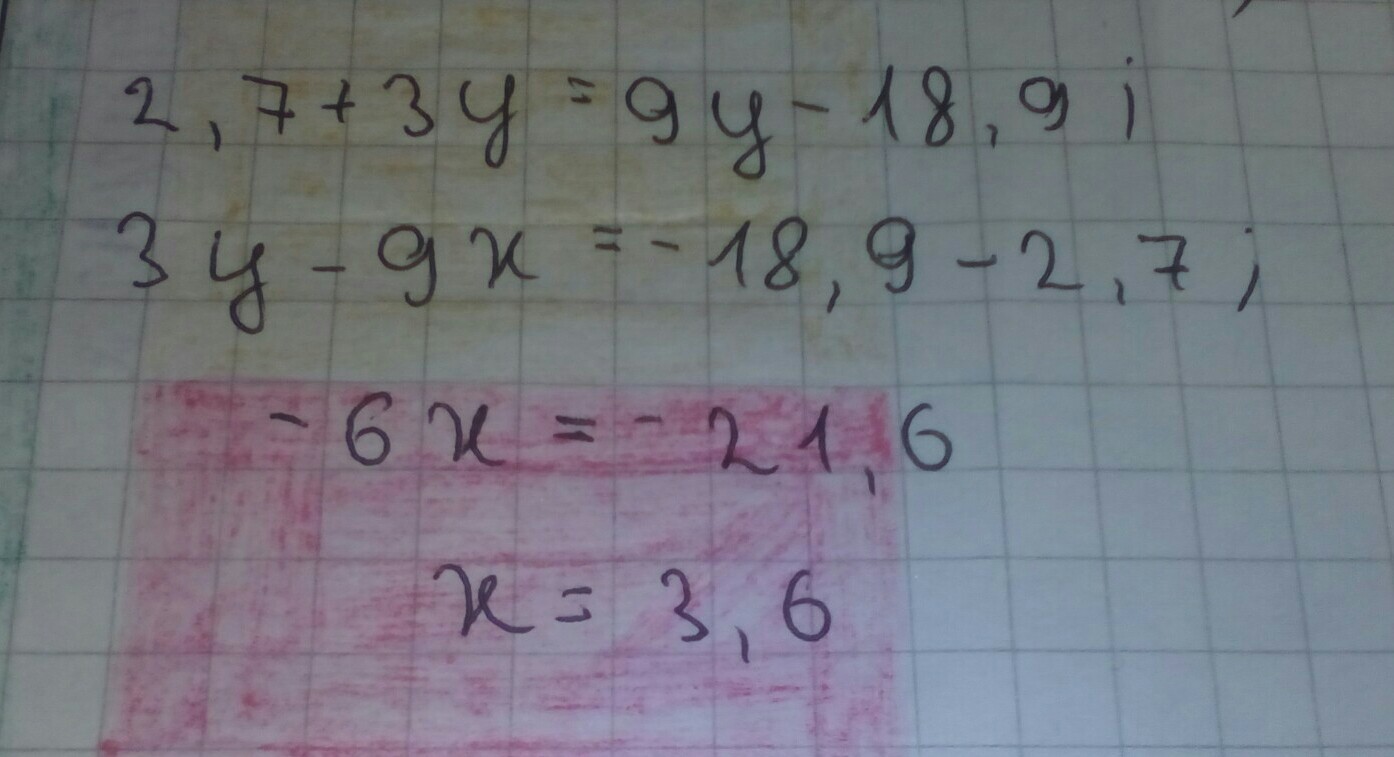 2,7+3y=9y-18,9;
3y-9x=-18,9-2,7;
-6x=-21,6
x=3,6